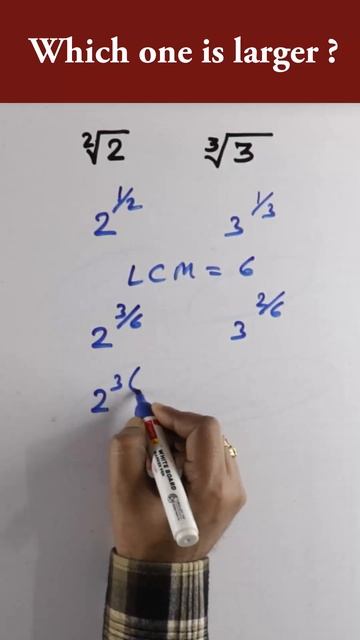 Which one is larger ?
²√2 ³√3
2^1/2 3^1/3
LCM = 6
2^3/6 3^2/6
2^3(
WHITE BOARD